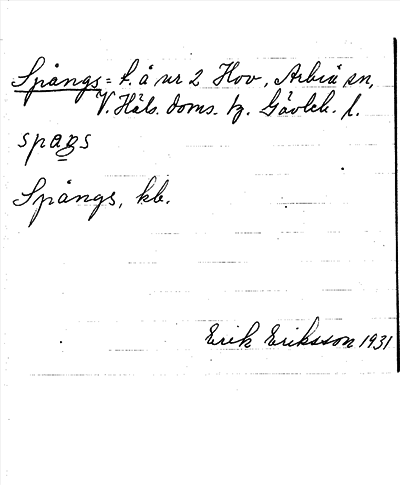 Spångs = t. å nr 2 Hov, Arbrå sn,
V. Häls. doms. tg. Gävleb. l.
spaŋs
Spångs, kb.
Erik Eriksson 1931